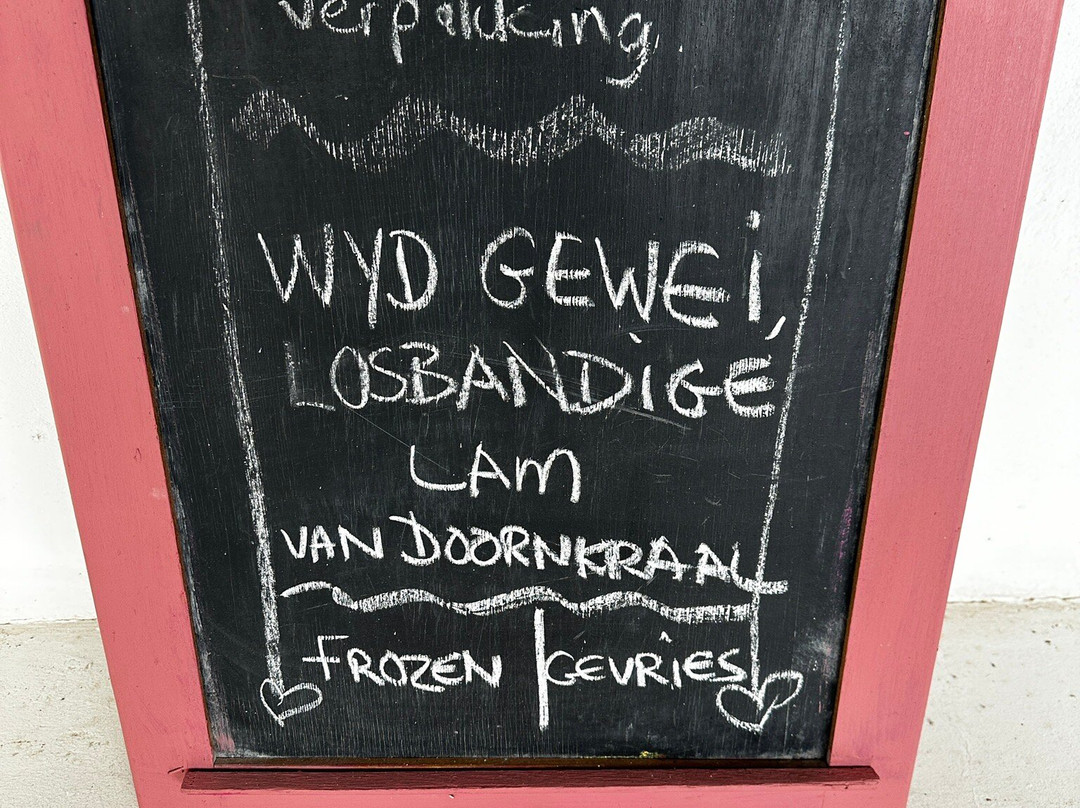 verpakking.
WYD GEWEI,
LOSBANDIGE
LAM
VAN DOORNKRAAL
FROZEN | GEVRIES